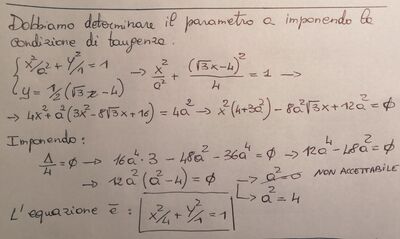 Dobbiamo determinare il parametro a imponendo la
condizione di tangenza.
{ x²/a² + y²/1 = 1 → x²/a² + (√3x-4)²/4 = 1 →
y = 1/2(√3x-4)
→ 4x² + a²(3x² - 8√3x + 16) = 4a² → x²(4+3a²) - 8a²√3x + 12a² = ∅
Imponendo:
Δ/4 = ∅ → 16a⁴·3 - 48a² - 36a⁴ = ∅ → 12a⁴ - 48a² = ∅
→ 12a²(a² - 4) = ∅ → a² = 0 NON ACCETTABILE
→ a² = 4
L'equazione è: x²/4 + y²/1 = 1